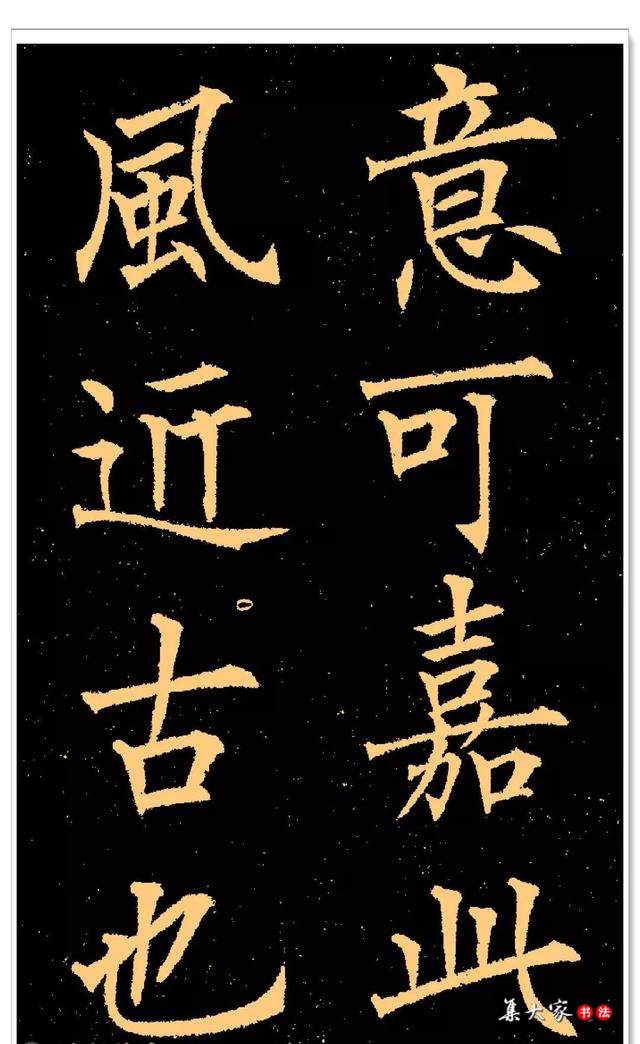 意可嘉此
風近古也
集大家书法